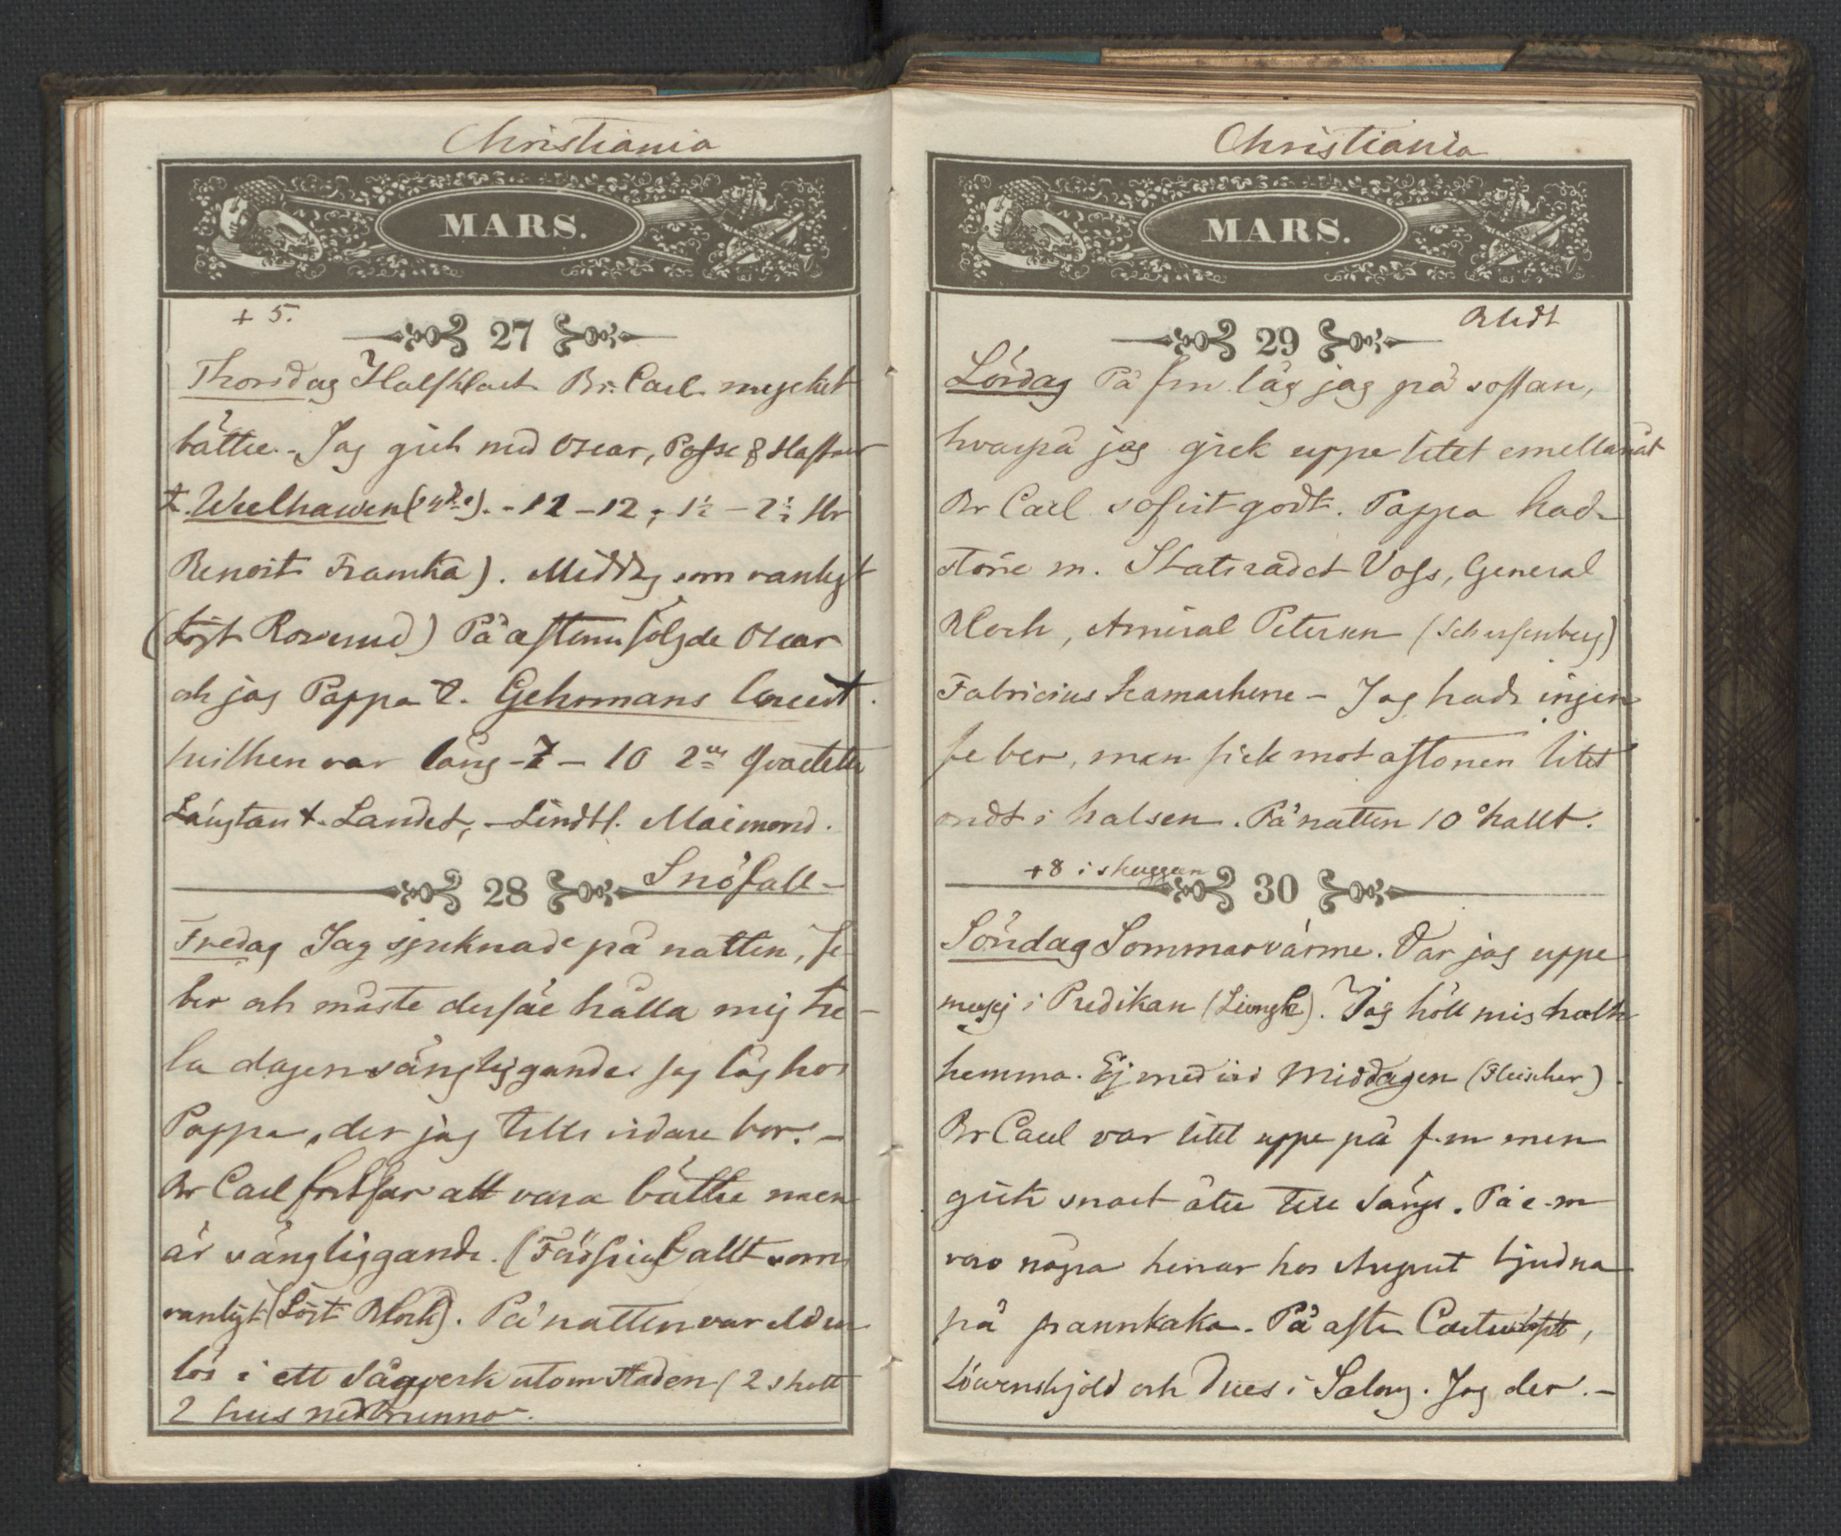 Christiania
MARS.
+ 5.
27
Thorsdag Halfklart Br. Carl mycket
bättre. - Jag gick med Oscar, Posse &
t. Welhawen - 11 - 12 ; 1½ - 2½ Hr
Benoit Franska). Middag som vanligt
(Löjt Rosensud) På aftonen följde Oscar
och jag Pappa t. Gehrmans Concert.
hvilken var lång - 7 - 10 2ne Qvartetter
Längtan t. Landet, - Lindbl.
28
Snöfall -
Fredag Jag sjuknade på natten, fe-
ber och måste derföre hålla mig he-
la dagen sängliggande. Jag låg hos
Pappa, der jag tills vidare bor. -
Br Carl fortfar att vara bättre men
är sängliggande. ( allt som
vanligt (Löjt Block). På natten var elden
lös i ett Sågverk utom staden (2 skott
2 hus nedbrunno.
Christiania
MARS.
29
Blidt
Lördag På fm låg jag på soffan,
hvarpå jag gick uppe litet emellanåt
Br Carl sofvit godt. Pappa hade
större m. Statsrådet Voss, General
Bloch, Amiral Petersen (Scharfenberg)
Fabricius Kamarherre - Jag hade ingen
feber, men fick mot aftonen litet
ondt i halsen. På natten 10° kallt.
+8 i skuggan
30
Söndag Sommarvärme. Var jag uppe
men ej i Predikan. Jag höll mig
hemma. Ej med vid Middagen (Fleischer).
Br Carl var litet uppe på f.m men
gick snart åter till Sängs. På e.m
voro några herrar hos August bjudna
på pannkaka. På aften
Löwenskjöld och Dues i Salong. Jag der. -